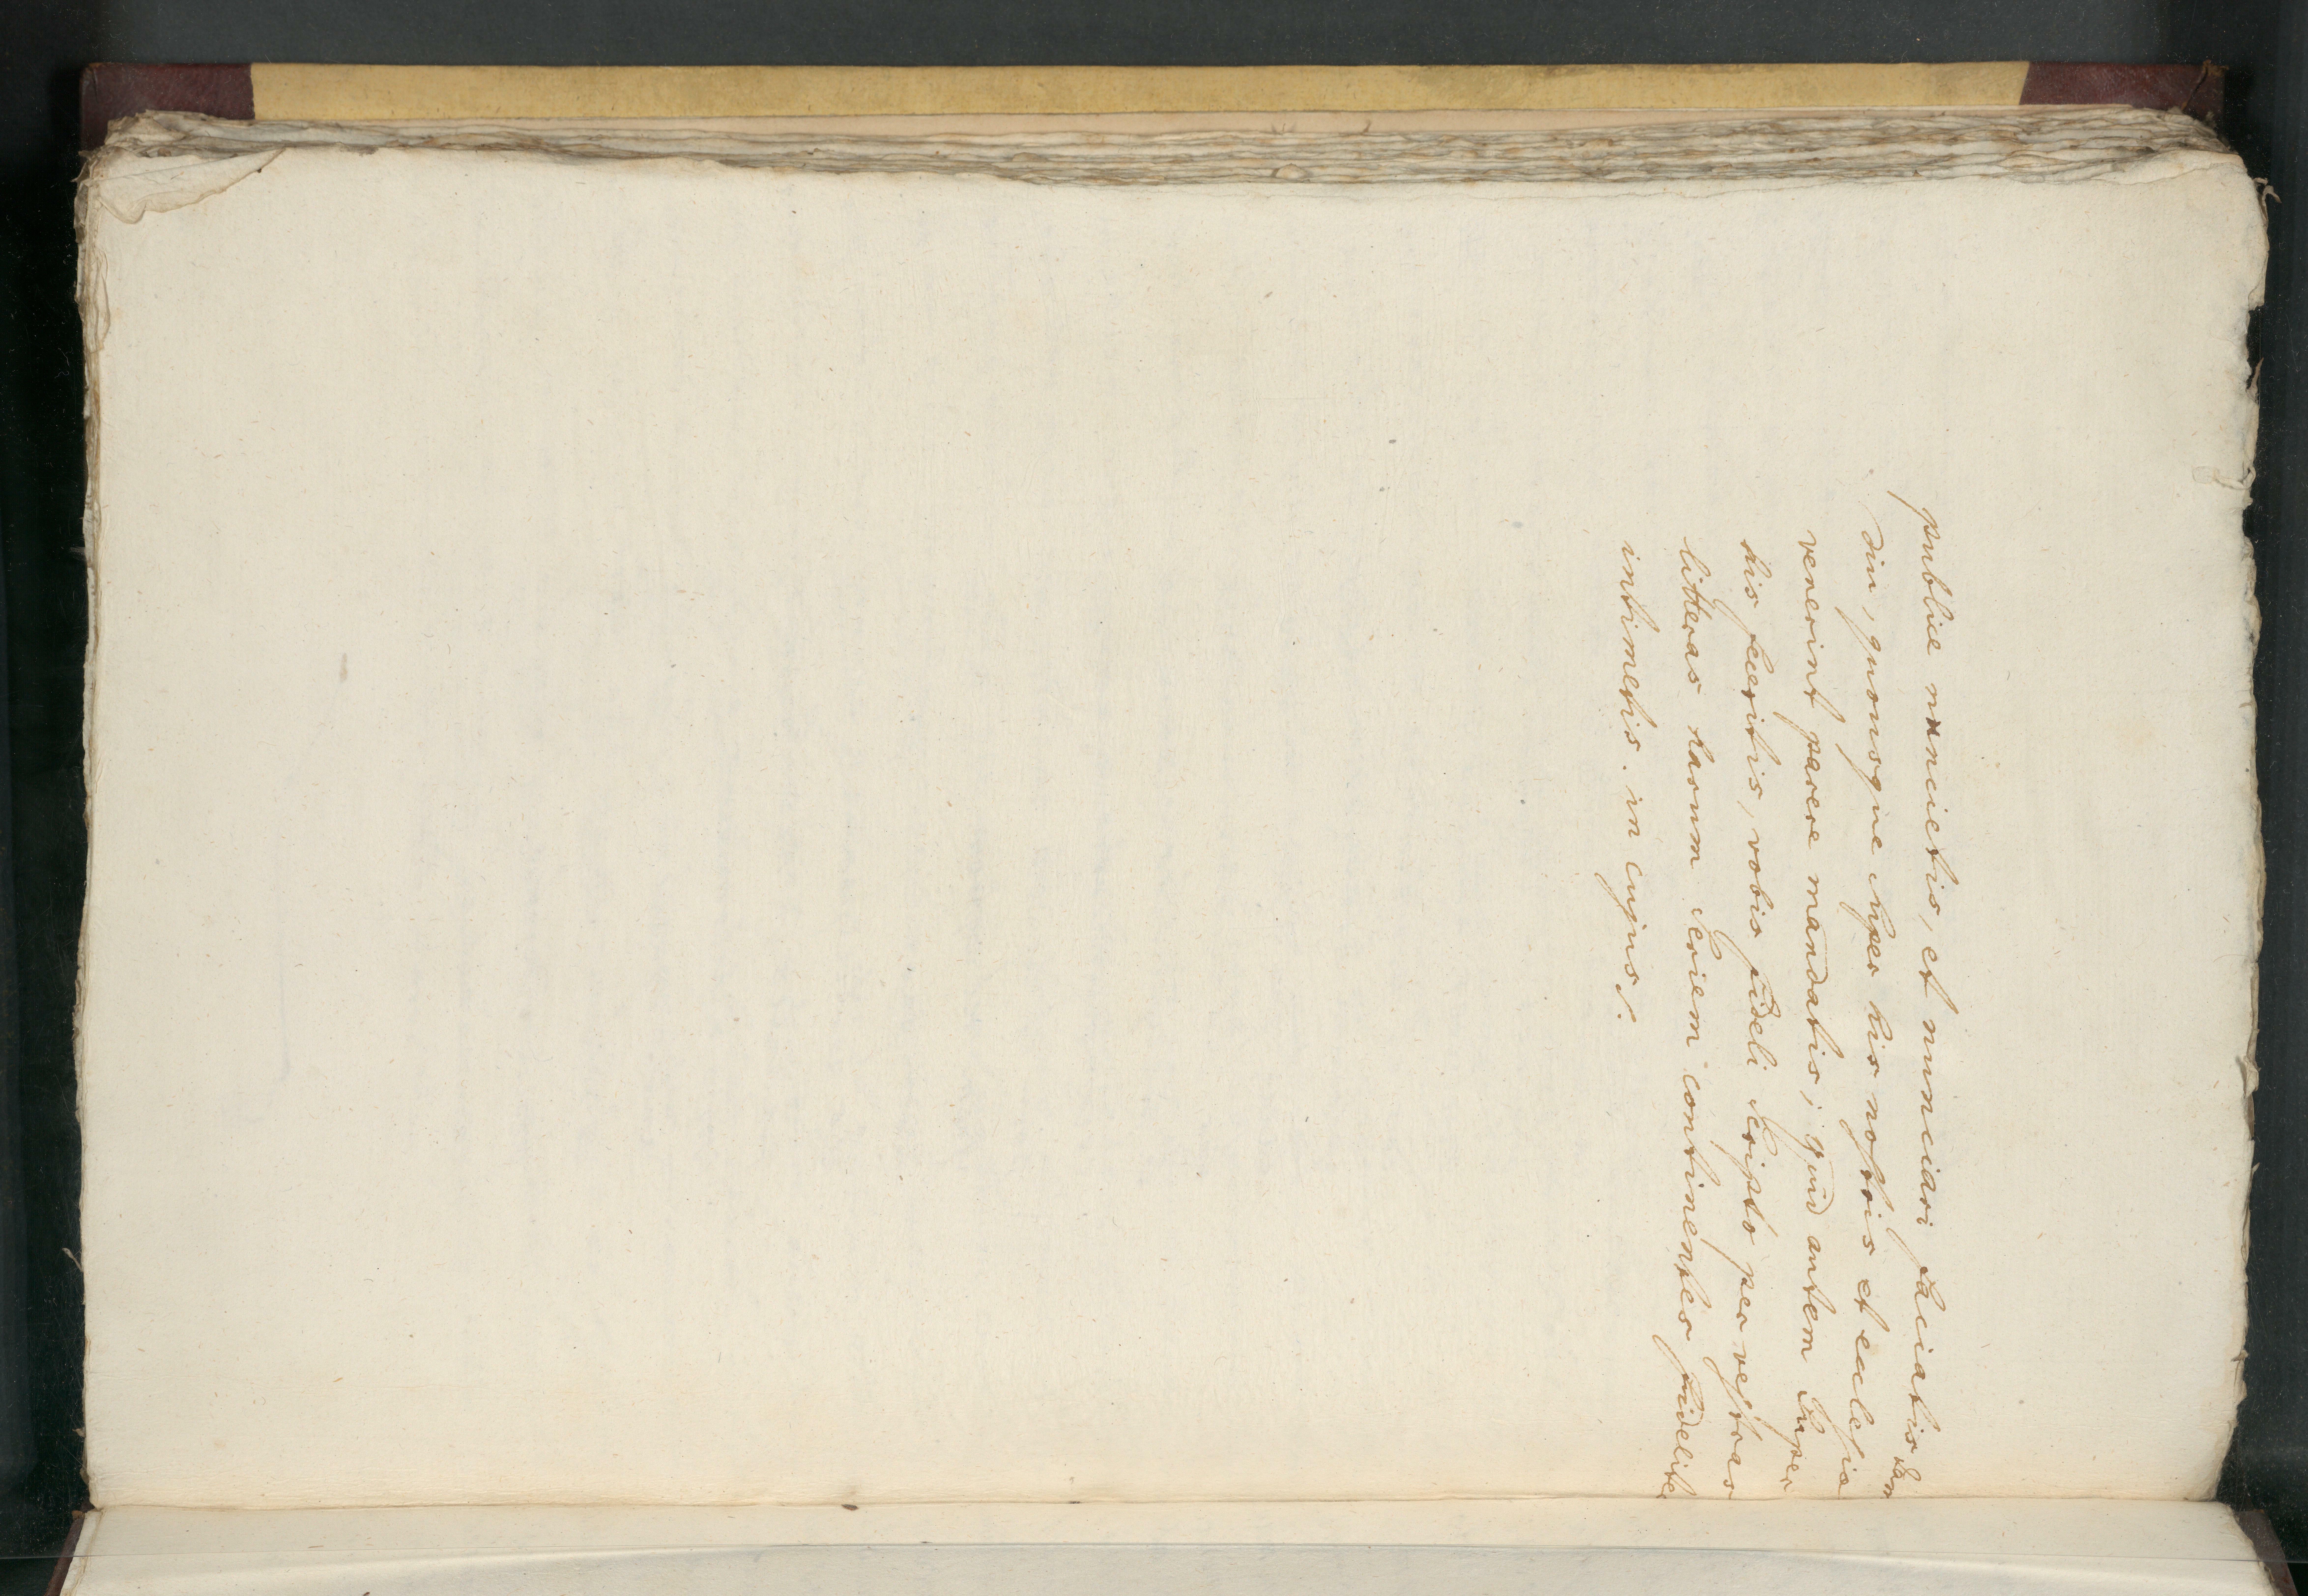 publice nuncietis, et nunciari faciatis tam
diu, quousque super his nostris et ecclesiæ
venerint parere mandatis; quid autem super
his feceritis, vobis fideli scripto per vestras
litteras harum seriem continentes fidelite
intimetis. in cujus /: